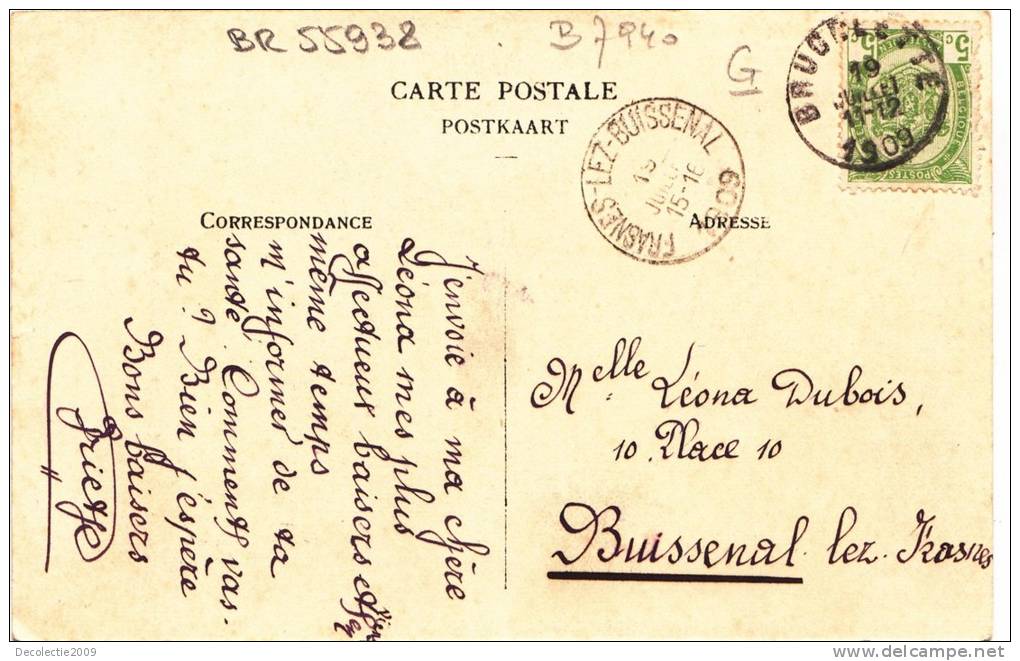 BR 55938
B 7940
G
CARTE POSTALE
POSTKAART
CORRESPONDANCE
ADRESSE
BRUGELETTE
19
JUILLET
11-12
1909
5 c
5 c
BELGIQUE
POSTES
FRASNES-LEZ-BUISSENAL
19
15-16
1909
J'envoie à ma chère
Léona mes plus
affectueux baisers et
même temps
m'informer de ta
santé. Comment vas-
tu ? Bien j'espère
Bons baisers
Melle Léona Dubois,
10 Place 10
Buissenal lez Frasnes
Decolectie2009
www.delcampe.net